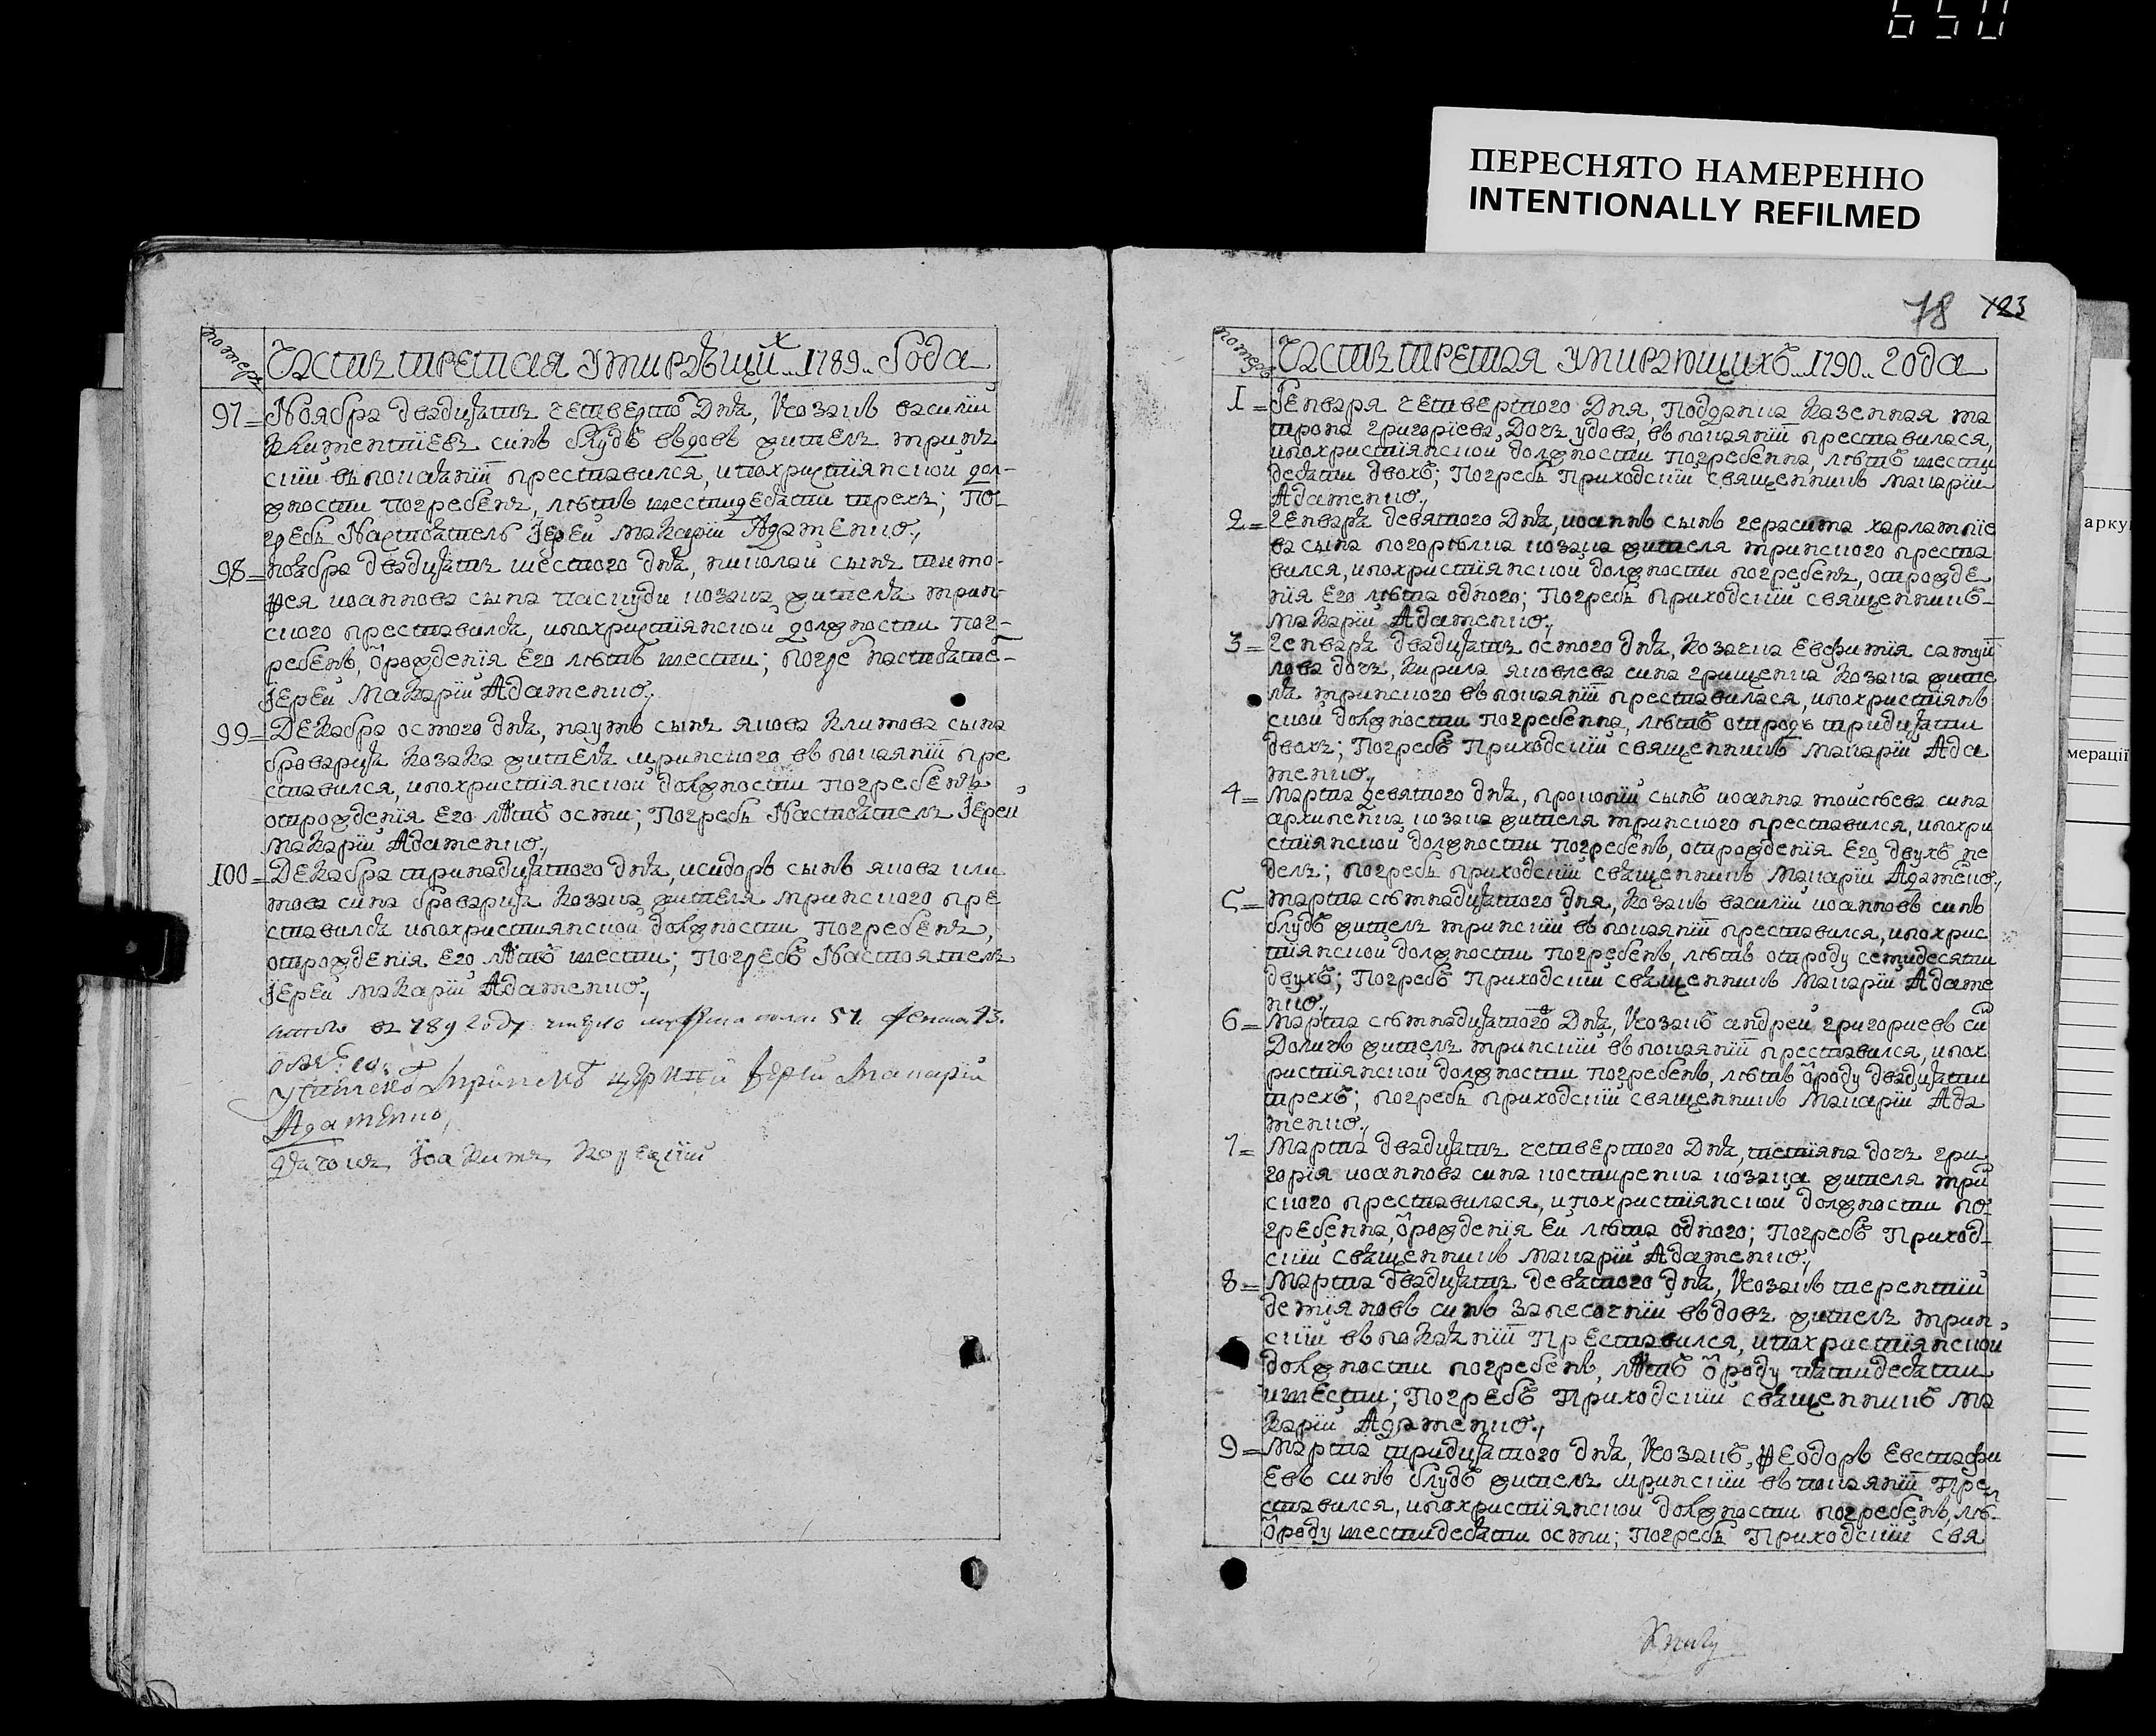 650
ПЕРЕСНЯТО НАМЕРЕННО
INTENTIONALLY REFILMED
номеръ
Часть третая умирающих 1789 года
97 = Ноября двадцять четвертого дня, козакъ василии
климентиевъ синъ блудъ вдовъ жителъ мрин
скии въ покаянїи преставился, и похристїянской дол-
жности погребенъ, лѣтъ шестидесяти трехъ; По-
гребъ Настоятель Іерей Макарїи Адаменко.,
98 = ноября двадцять шестого дня, николай сынъ тимо-
ѳея иоаннова сына пацуди козака жителя мрин-
ского преставился, и похристїянской должности пог-
ребенъ, ѿрожденїя Его лѣтъ шести; погре настояте-
Іерей Макарїи Адаменко.,
99 = Декабра осмого дня, наумъ сынъ якова климова сына
броварця козака жителя мринского въ покаянїи пре
ставился, и похристїянской должности погребенъ
отрожденїя Его лѣтъ осми; Погребъ Настоятель Іерей
Макарїи Адаменко.,
100 = Декабра тринадцятого дня, исидоръ сынъ якова кли
мова сина броварця козака жителя мринского пре
ставился и похристиянской должности погребенъ,
отрожденїя Его лѣтъ шести; Погребъ Настоятель
Іерей Макарїи Адаменко.,
789 году число полу 51
Мринской Іерей Макарїи
Адаменко,
Дячокъ Іоакимъ
78 123
номеръ
Часть третая умирающихъ 1790 года
1 = Генваря четвертого дня, подданка казенная ма
трона григорїева дочъ удова, въ покаянїи преставилася,
и похристїянской должности погребенна, лѣтъ шести
десяти двохъ; Погребъ Приходскїи священникъ Макарїи
Адаменко.,
2 = Генваря девятого дня, иоаннъ сынъ герасима харлампїе
ва сына погорѣлка козака жителя мринского преста
вился, и похристїянской должности погребенъ, отрожде
нїя Его лѣта одного; Погребъ приходскїи священникъ
Макарїи Адаменко.,
3 = Генваря двадцять осмого дня, козачка Евфимїя самуи
лова дочъ, кирила яковлева сина грищенка козака жите
ля мринского въ покаянїи преставилася, и похристїянъ
ской должности погребенна, лѣтъ отродъ тридцяти
двохъ; Погребъ Приходскїи священникъ Макарїи Ада
менко.,
4 = Марта девятого дня, прокопїи сынъ иоанна моисѣева сина
архипенка козака жителя мринского преставился, и похри
стїянской должности погребенъ, отрожденїя Его двухъ не
дель; погребъ приходскїи священникъ Макарїи Адаменко.,
5 = Марта сѣмнадцятого дня, козакъ василїи иоанновъ синъ
блудъ жителъ мринскїи въ покаянїи преставился, и похрис
тїянской должности погребенъ, лѣтъ отроду семидесяти
двухъ; Погребъ Приходскїи священникъ Макарїи Адаме
нко.,
6 = Марта сѣмнадцятого дня, козакъ андрей григориевъ си
жителъ мринскїи въ покаянїи преставился, и пох
ристїянской должности погребенъ, лѣтъ ѿроду двадцяти
трехъ; погребъ приходскїи священникъ Макарїи Ада
менко.,
7 = Марта двадцять четвертого дня, дочъ гри
горїя иоаннова сина костиренка козака жителя мри
ского преставилася, и похристїянской должности по-
гребенна, ѿрожденїя Ей лѣта одного; Погребъ Приход-
скїи священникъ Макарїи Адаменко.,
8 = Марта двадцять девятого дня, козакъ терентїи
демїяновъ синъ запесочнїи вдовъ жителъ мрин
скїи въ покаянїи Преставился, и похристїянской
должности погребенъ, лѣтъ ѿроду пятидесяти
и шести; Погребъ Приходскїи священникъ Ма
карїи Адаменко.,
9 = Марта тридцятого дня, козакъ, ѳеодоръ Евстафи
Евъ синъ блудъ жителъ мринскїи въ покаянїи Пре
ставился, и похристїянской должности погребенъ, лѣ-
ѿроду шестидесяти осми; Погребъ Приходскїи свя
Книгу
арку
мерації